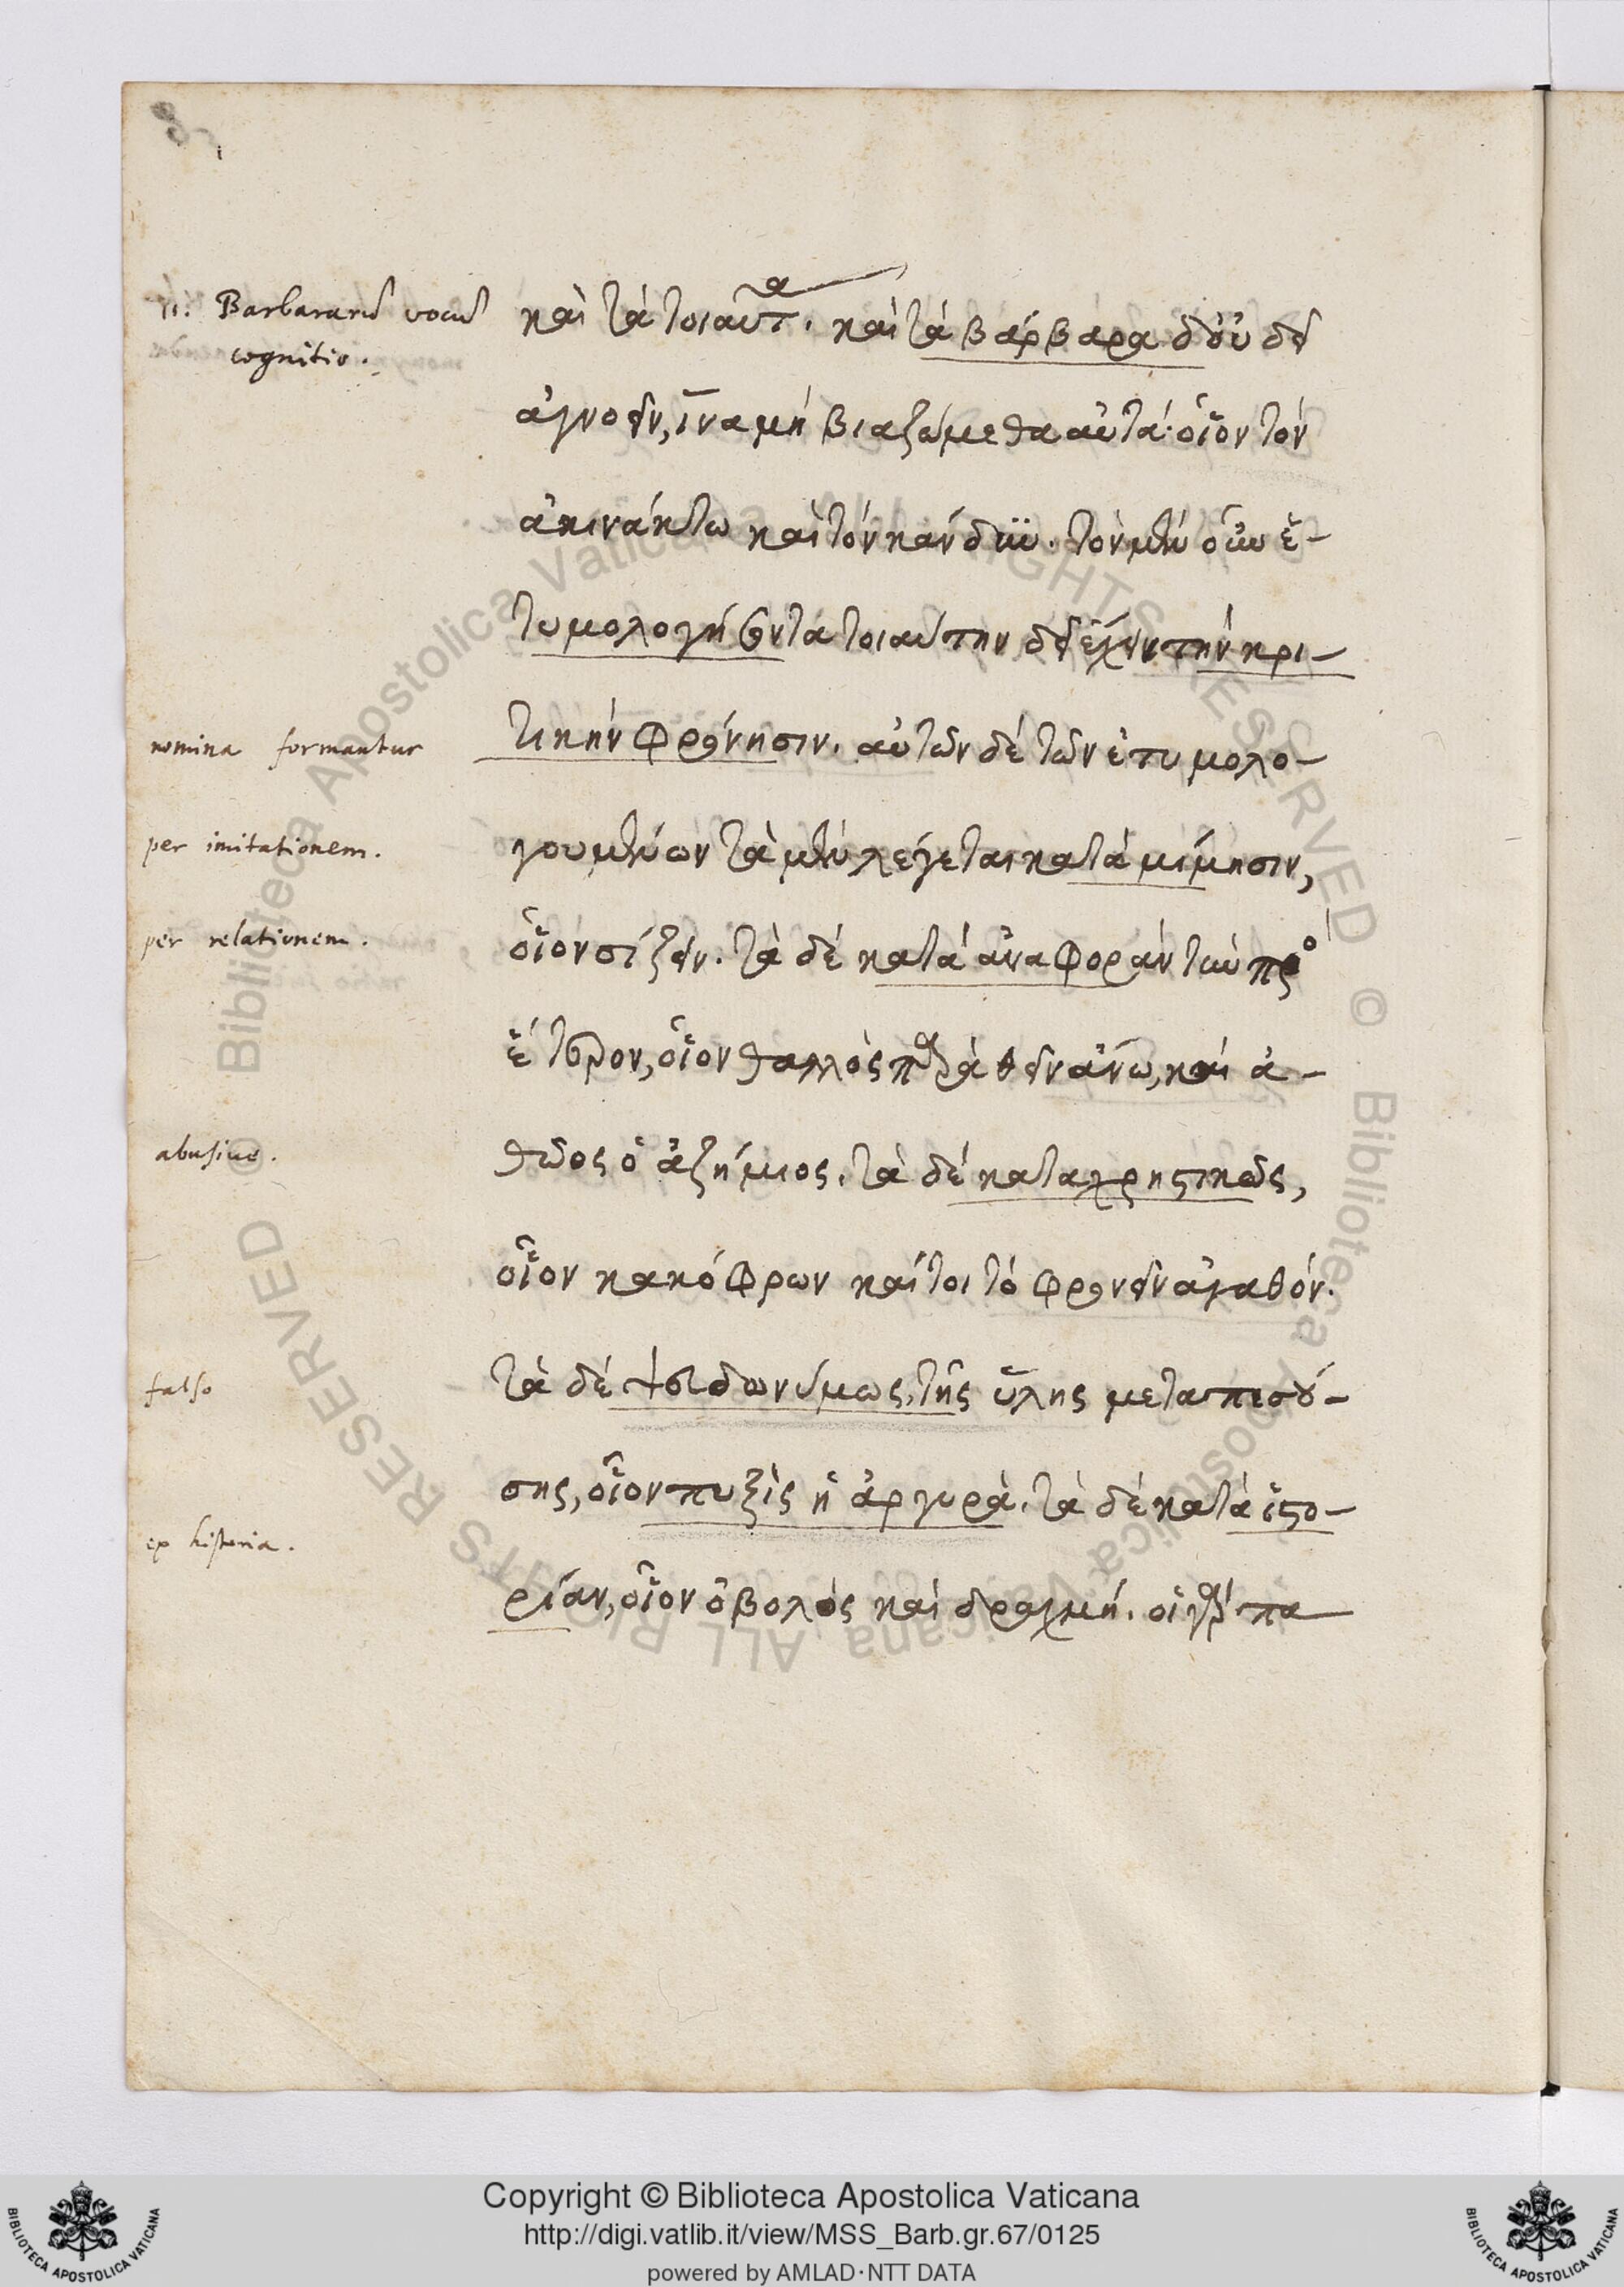 11. Barbararũ vocũ
cognitio.
καὶ τὰ τοιαῦτα. καὶ τὰ βάρβαρα δ' οὐ δεῖ
ἀγνοεῖν, ἵνα μὴ βιαζώμεθα αὐτά· οἷον τὸν
ἀκινάκην καὶ τὸν κάνδυν. τὸν μὲν οὖν ἐ-
τυμολογήσοντα τοιαύτην δεῖ ἔχειν τὴν κρι-
nomina formantur
τικὴν φρόνησιν. αὐτῶν δὲ τῶν ἐτυμολο-
per imitationem.
γουμένων τὰ μὲν λέγεται κατὰ μίμησιν,
per relationem.
οἷον σίζειν. τὰ δὲ κατὰ ἀναφορὰν τὴν πρὸς
ἕτερον, οἷον θαλλὸς παρὰ θεῖν ἄνω, καὶ ἀ-
abusive.
θῶος ὁ ἀζήμιος. τὰ δὲ καταχρηστικῶς,
οἷον κακόφρων καίτοι τὸ φρονεῖν ἀγαθόν.
falso
τὰ δὲ ψευδωνύμως, τῆς ὕλης μεταπεσού-
σης, οἷον πυξὶς ἡ ἀργυρᾶ. τὰ δὲ κατὰ ἱστο-
ex historia.
ρίαν, οἷον ὀβολὸς καὶ δραχμή. οἱ γὰρ πα
Copyright © Biblioteca Apostolica Vaticana
http://digi.vatlib.it/view/MSS_Barb.gr.67/0125
powered by AMLAD·NTT DATA